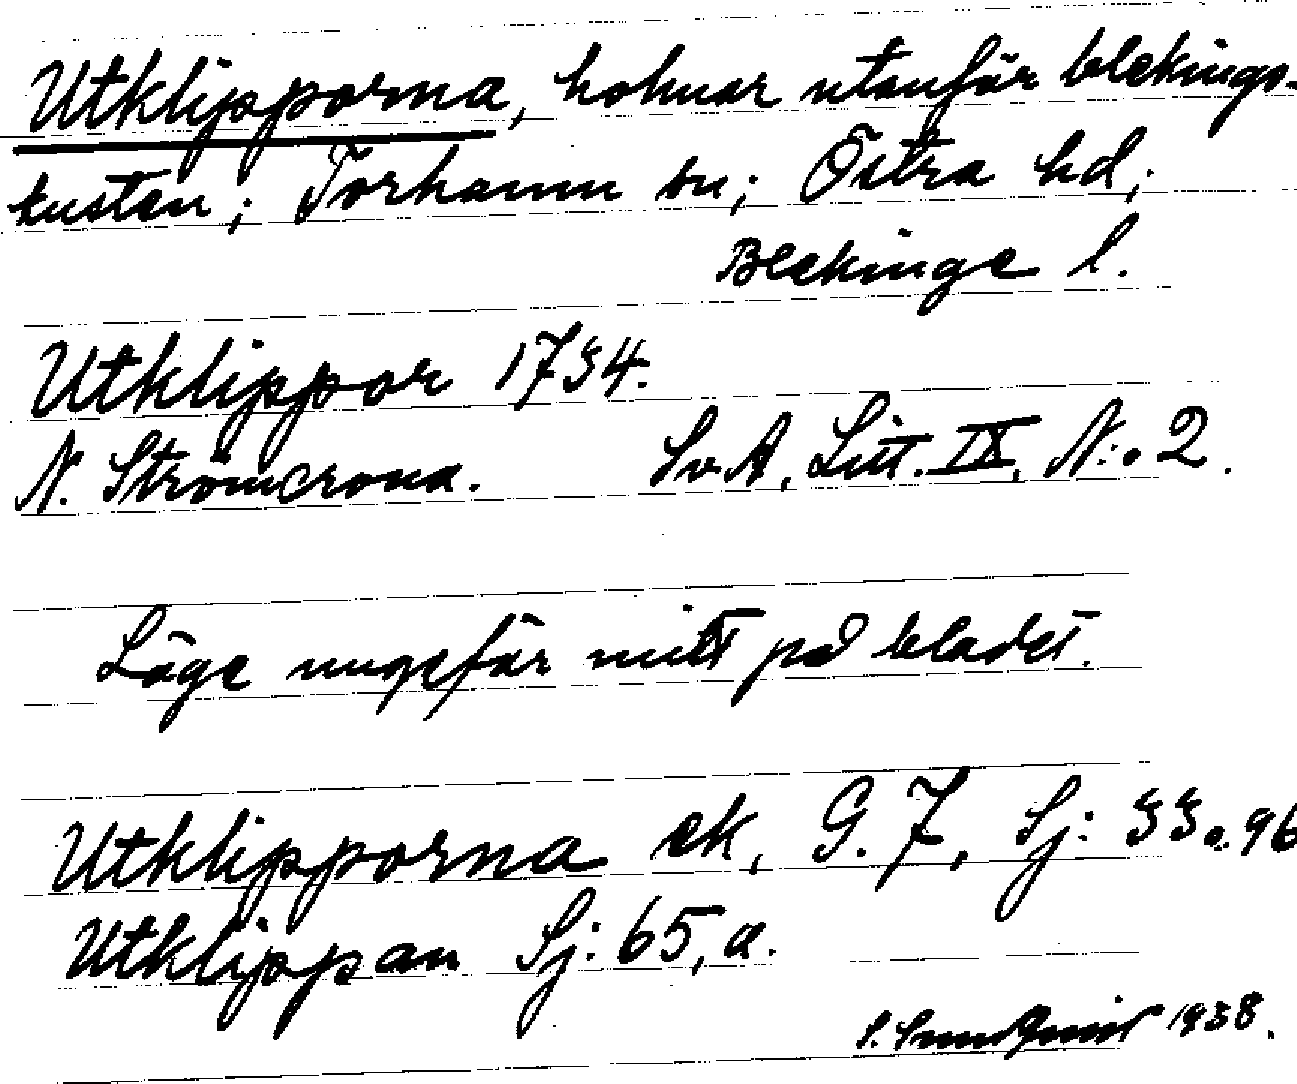 Utklipporna, holmar utanför blekings-
kusten; Torhamn sn; Östra hd;
Blekinge l.
Utklippor 1734.
N. Strömcrona. Sv. A, Litt. IX, N:o 2.
Läge ungefär mitt på bladet.
Utklipporna ek, G. 7, Sj: 33 o. 96
Utklippan Sj: 65, a.
S. Sundquist 1938.